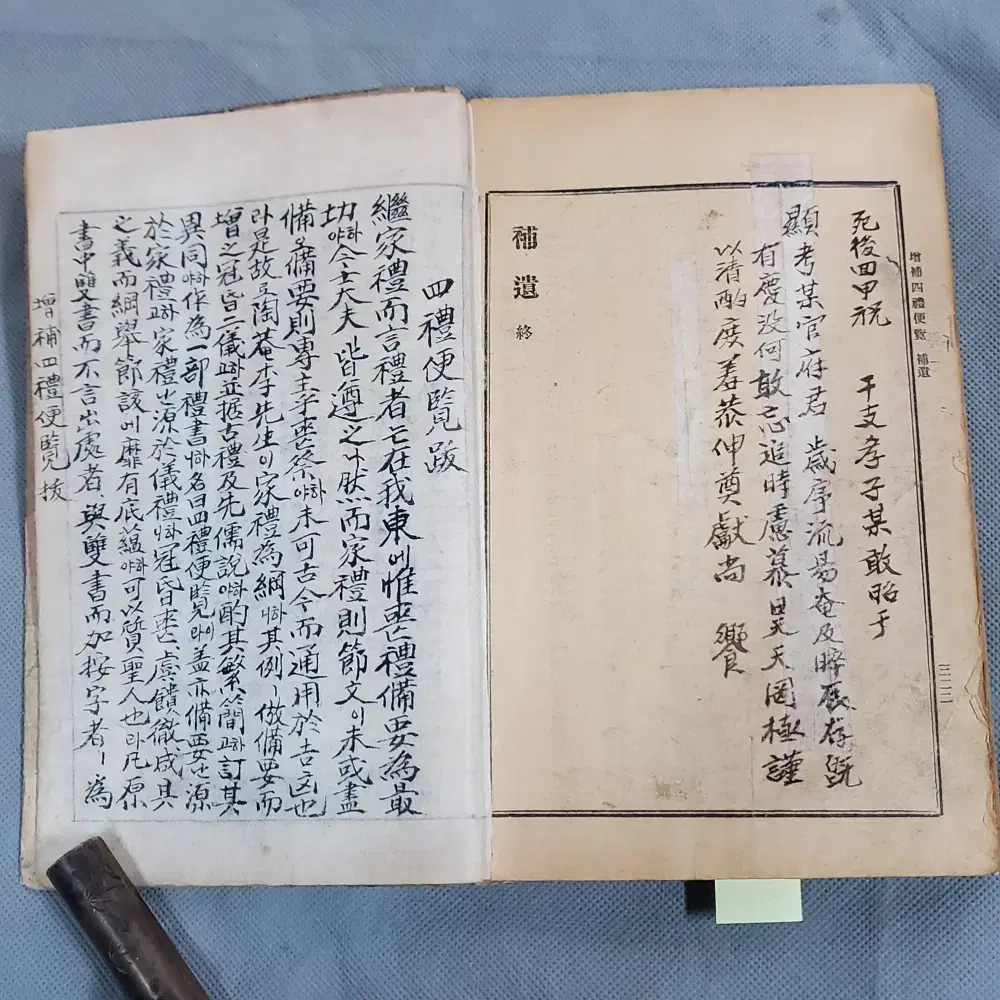 增補四禮便覽 補遺
三二二
死後回甲祝 干支孝子某敢昭于
顯考某官府君 歲序流易奄及晬辰存旣
有慶没何敢忘追時感慕昊天罔極謹
以清酌庶羞恭伸奠獻尚 饗
補遺 終
四禮便覽跋
繼家禮而言禮者亡在我東에惟喪禮備要為最
切야하今士大夫 皆遵之나然而家禮則節文이未或盡
備오備要則專主乎喪祭야하未可古今而通用於吉凶也
라是故로陶菴李先生이家禮為綱하其例備要而
增之冠昏二儀고하並据古禮及先儒說야하酌其繁簡고하訂其
異同야하作為一部禮書하名曰四禮便覽이라盖亦備要之源
於家禮고하家禮之源於儀禮하冠昏喪虞饋徹咸具
之義而綱舉節該에靡有底蘊야하可以質聖人也라凡原
書中雙書而不言出處者、與雙書而加按字者為
增補四禮便覽 拔